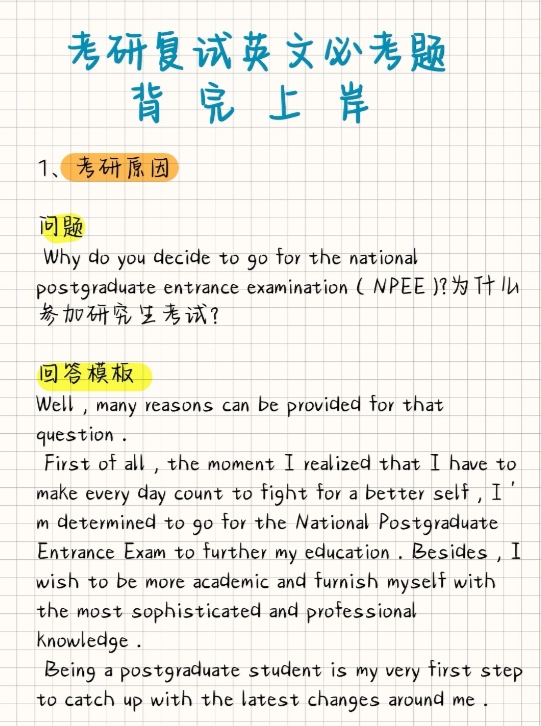 考研复试英文必考题
背完上岸
1、考研原因
问题
Why do you decide to go for the national
postgraduate entrance examination ( NPEE )?为什么
参加研究生考试?
回答模板
Well , many reasons can be provided for that
question .
First of all , the moment I realized that I have to
make every day count to fight for a better self , I '
m determined to go for the National Postgraduate
Entrance Exam to further my education . Besides , I
wish to be more academic and furnish myself with
the most sophisticated and professional
knowledge .
Being a postgraduate student is my very first step
to catch up with the latest changes around me .